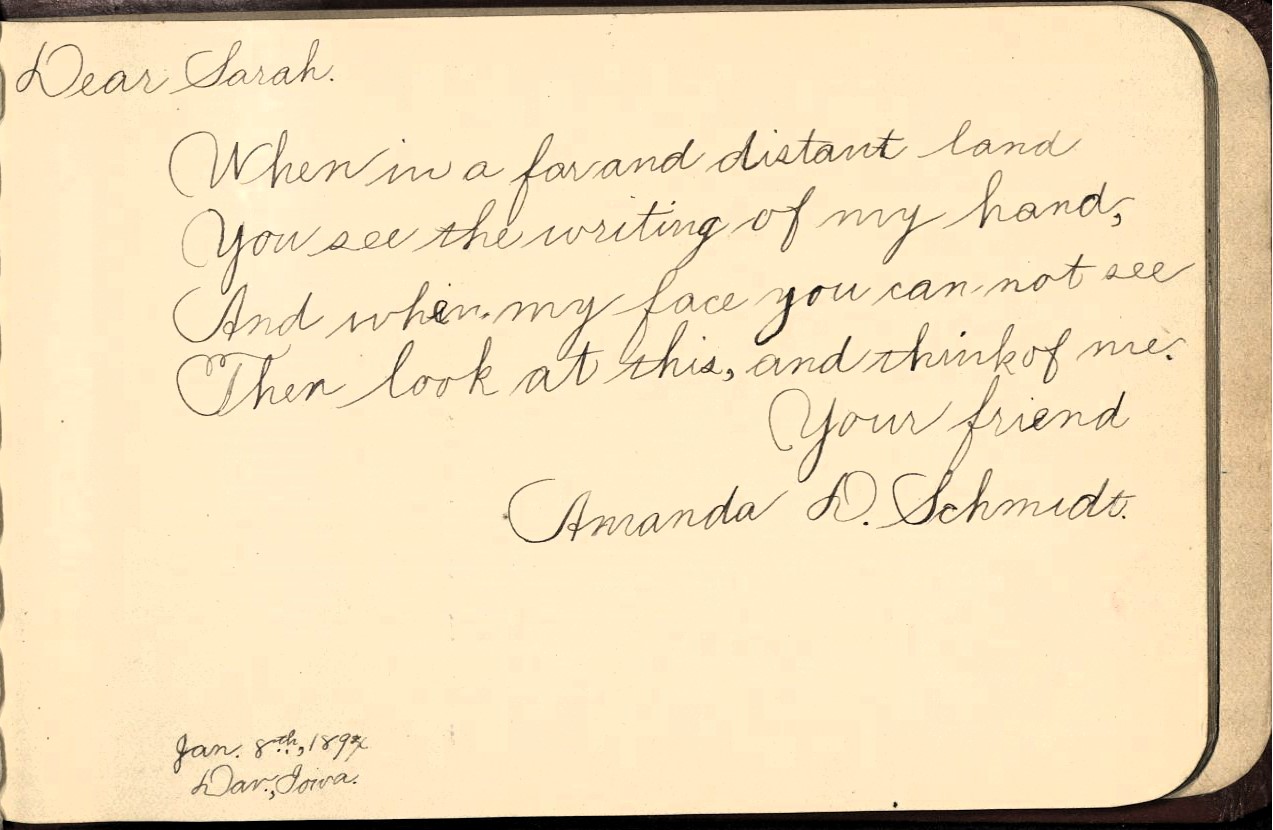 Dear Sarah.
When in a far and distant land
You see the writing of my hand,
And when my face you can not see
Then look at this, and think of me.
Your friend
Amanda D. Schmidt.
Jan. 8th,
Dav., Iowa.